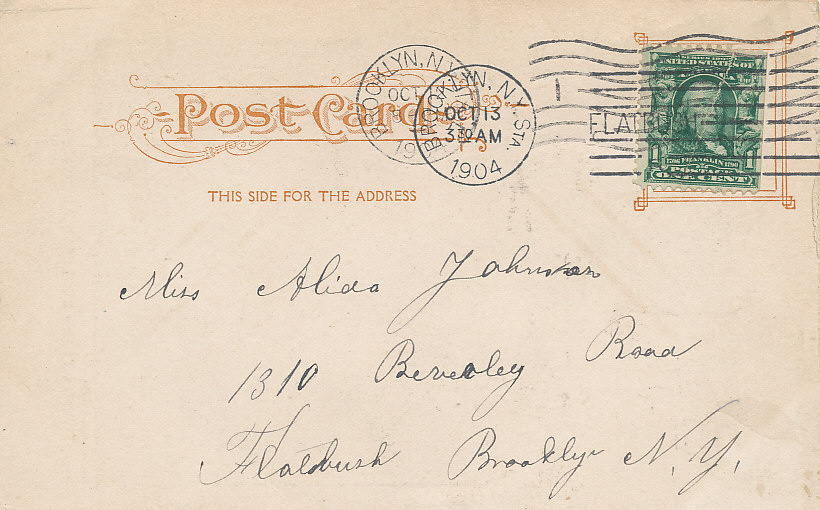 Post Card
THIS SIDE FOR THE ADDRESS
BROOKLYN, N.Y.
OCT
BROOKLYN, N.Y. STA.
OCT 13
3 30 AM
1904
1
FLATBUSH
SERIES 1902
UNITED STATES OF
1 FRANKLIN 1
1706 1790
POSTAGE
ONE CENT
Miss Alida Johnson
1310 Beverley Road
Flatbush Brooklyn N.Y.